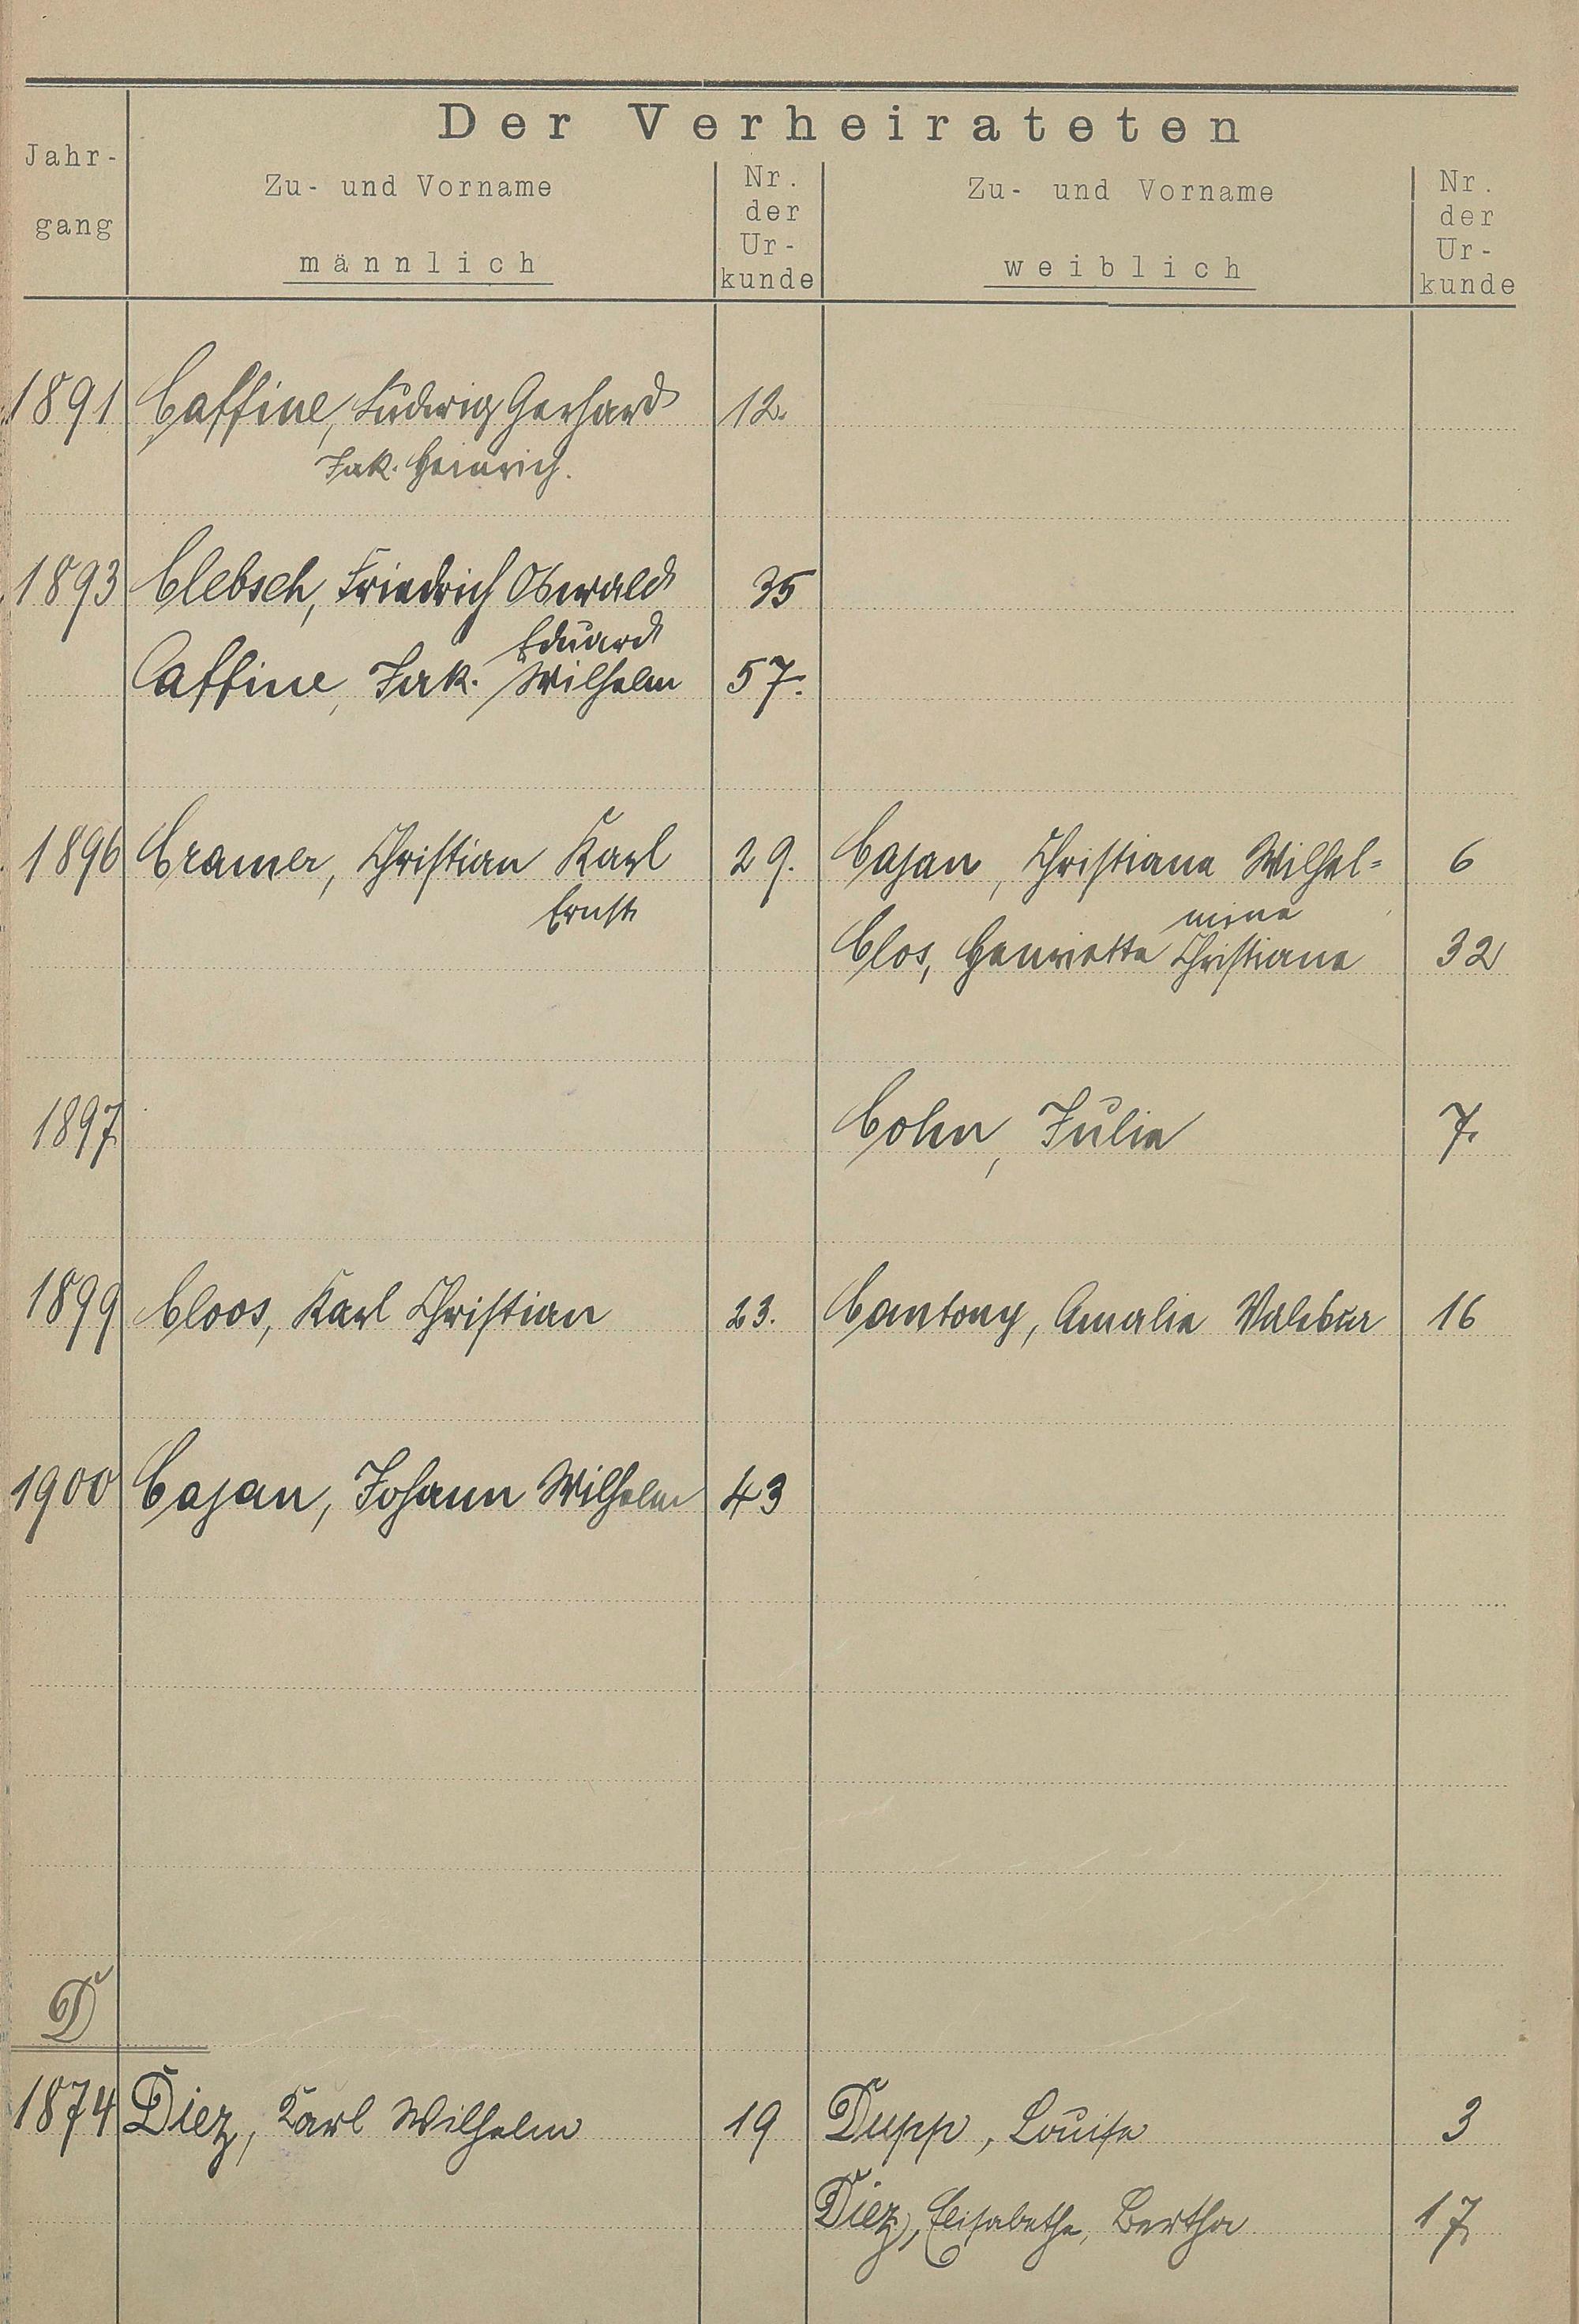 Der Verheirateten
Jahr-
gang
Zu- und Vorname
männlich
Nr.
der
Ur-
kunde
Zu- und Vorname
weiblich
Nr.
der
Ur-
kunde
1891 Caffine, Ludwig Gerhard 12.
Jak. Heinrich.
1893 Clebsch, Friedrich Oswald 35
Eduard
Caffine, Jak. Wilhelm 57.
1896 Cramer, Christian Karl 29. Cajan, Christiane Wilhel= 6
Ernst mine
Clos, Henriette Christiane 32
1897 Cohn, Julie 7.
1899 Cloos, Karl Christian 23. Cantony, Amalie 16
1900 Cajan, Johann Wilhelm 43
D
1874 Diez, Karl Wilhelm 19 Dupp, Louise 3
Diez, Elisabethe, Bertha 17